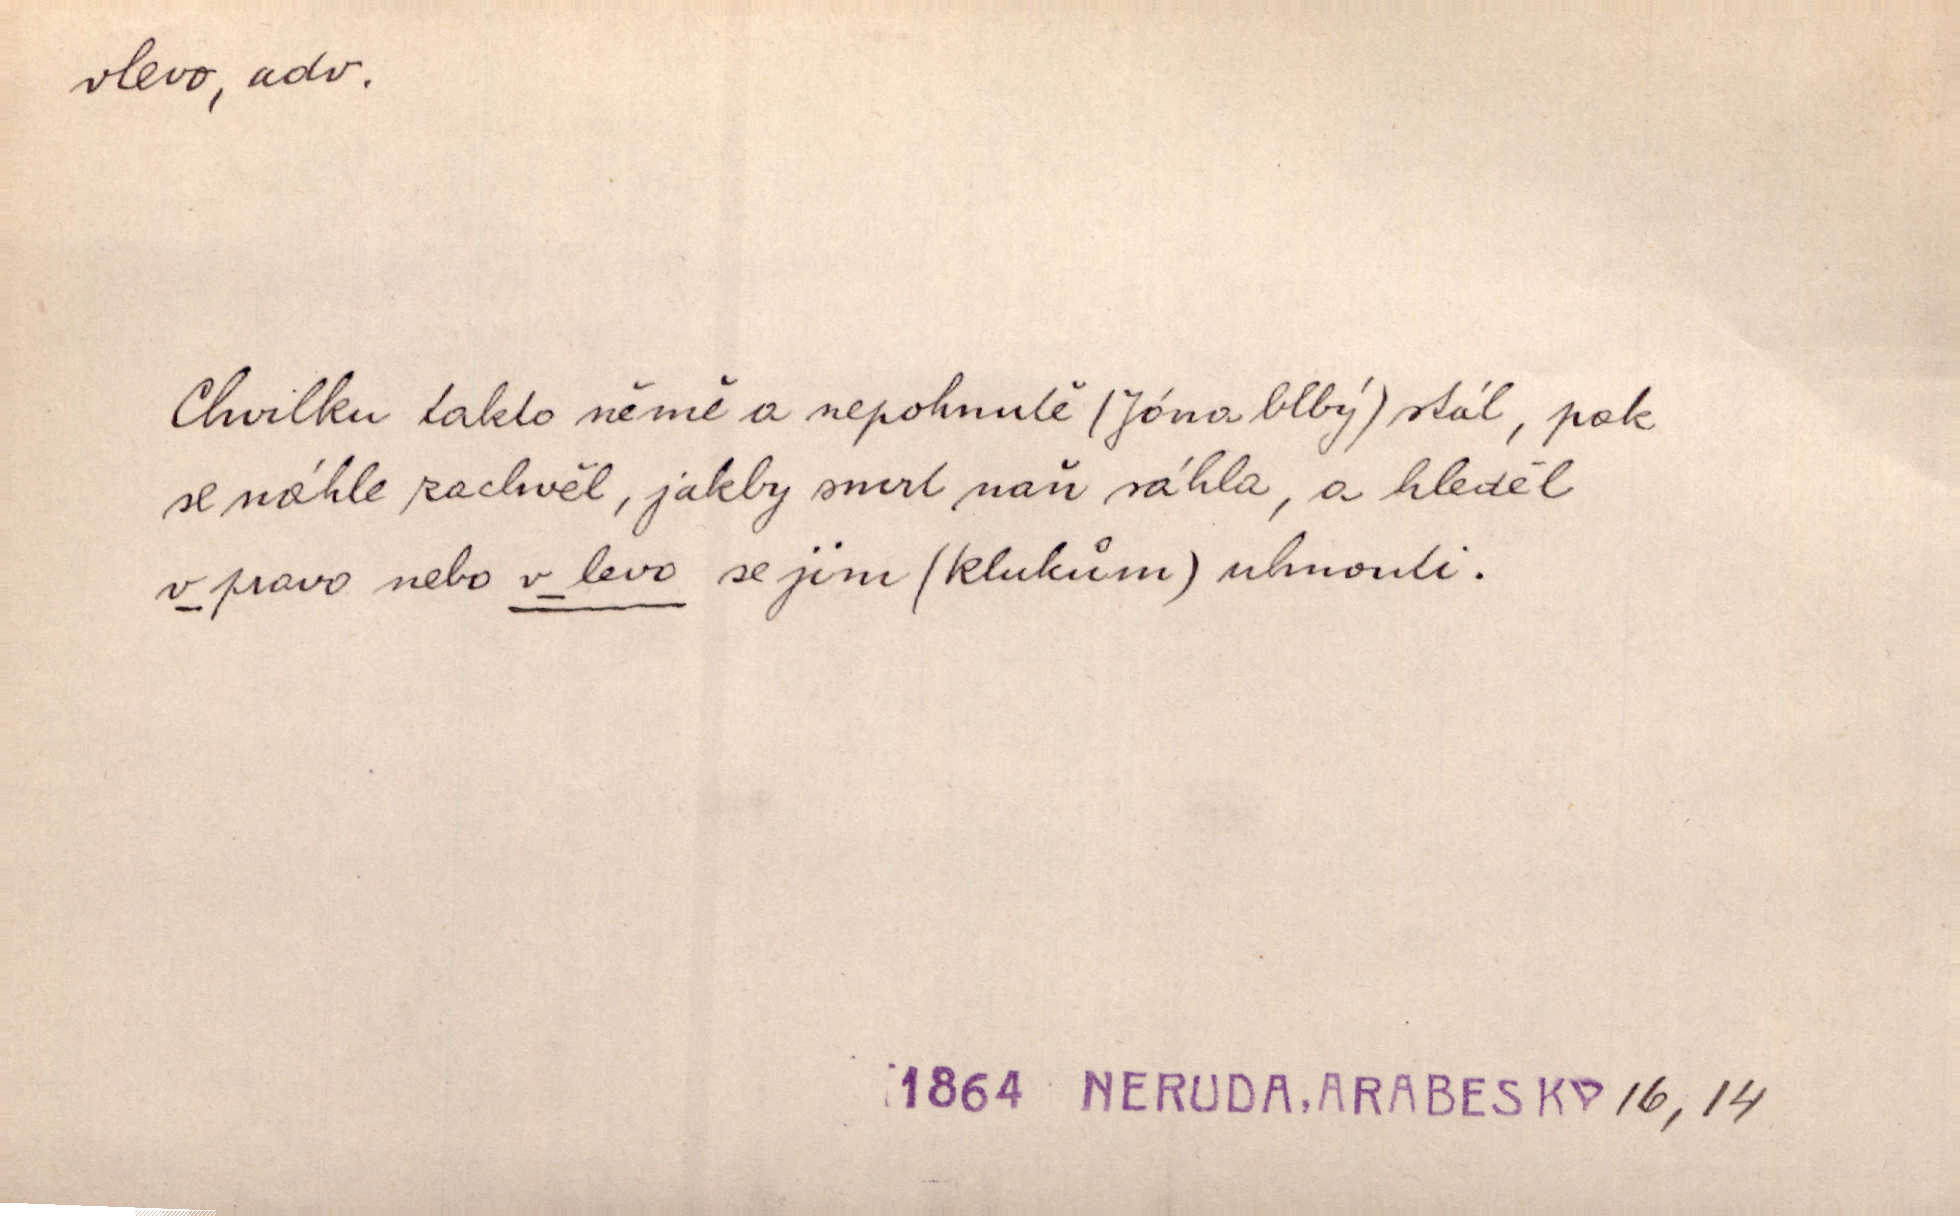 vlevo, adv.
Chvilku takto němě a nepohnutě (Jóna blbý) stál, pak
se náhle zachvěl, jakby smrt naň sáhla, a hleděl
v pravo nebo v levo se jim (klukům) uhnouti.
1864 NERUDA, ARABESKY 16, 14